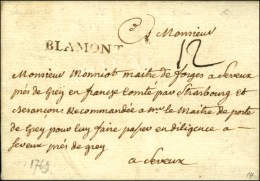 Monsieur
BLAMONT
12
Monsieur Monniot maitre de forges a Seveux
près de Grey en franche Comté par Strasbourg et
Besançon; Recommandée a Mr le Maitre de poste
de Grey pour luy faire passer en diligence a
Seveux près de grey
a Seveux
1769